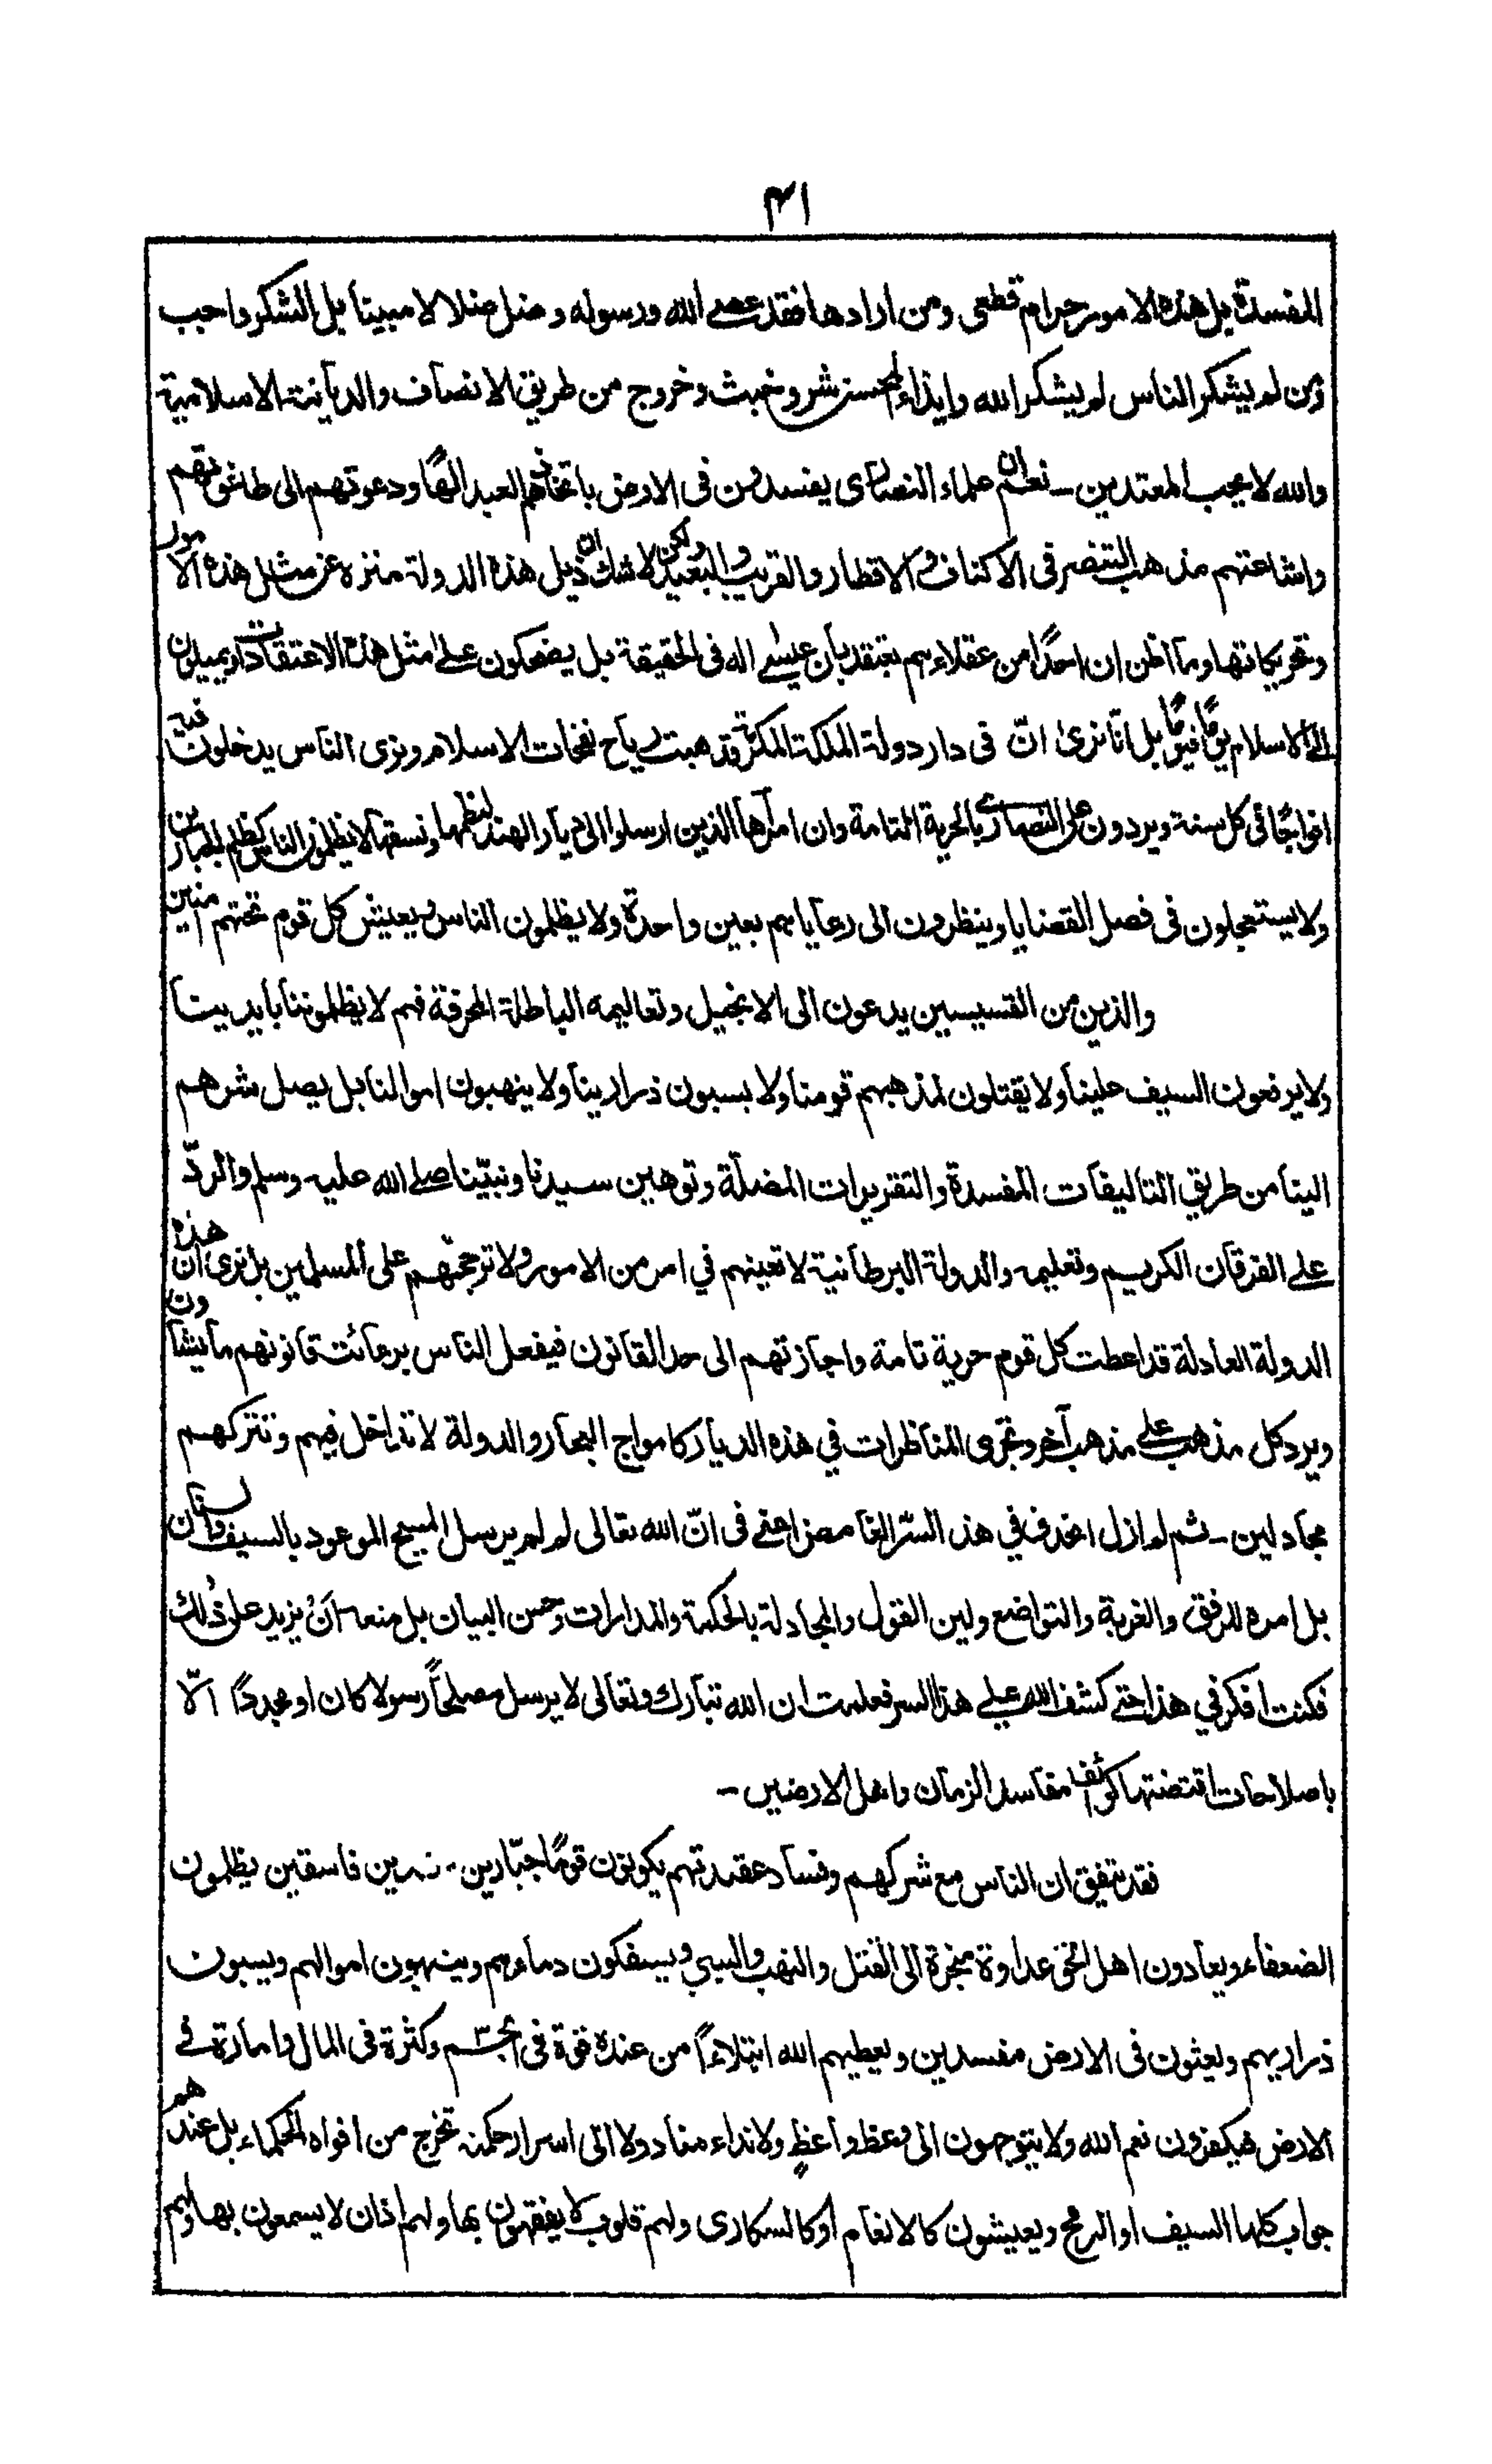 ٤١
المفسدة بل هذه الامور حرام قطعى ومن ارادها فقد عصى الله ورسوله وضل ضلالا مبينا بل الشكر واجب
ومن لم يشكر الناس لم يشكر الله وايذاء المحسن شر وخبث وخروج من طريق الانصاف والديانة الاسلامية
والله لا يحب المعتدين ـ نعم ان علماء النصارى يفسدون فى الارض باتخاذهم العبد الٰهًا ودعوتهم الى طاغوتهم
واشاعتهم مذهب التنصر فى الاكناف والاقطار والقريب والبعيد ولكن لا شك ان ذيل هذه الدولة منزه عن مثل هذه الامور
وتحريكاتها وما اظن ان احدًا من عقلاءهم يعتقد بان عيسى اله فى الحقيقة بل يضحكون على مثل هذه الاعتقادات ويميلون
الى الاسلام يومًا فيومًا بل انا نرى انّ فى دار دولة الملكة المكرمة قد هبت رياح نفحات الاسلام ونرى الناس يدخلون فيه
افواجًا فى كل سنة ويردون على النصارى بالحرية التامة وان امرآءها الذين ارسلوا الى ديار الهند لنظمها ونسقها لا يظلمون الناس كظلم الجبارين
ولا يستعجلون فى فصل القضايا وينظرون الى رعاياهم بعين واحدة ولا يظلمون الناس ويعيش كل قوم تحتهم امنين
والذين من القسيسين يدعون الى الانجيل وتعاليمه الباطلة المحرفة فهم لا يظلموننا بايديهم
ولا يرفعون السيف علينا ولا يقتلون لمذهبهم قومنا ولا يسبون ذرارينا ولا ينهبون اموالنا بل يصل شرهم
الينا من طريق التاليفات المفسدة والتقريرات المضلّة وتوهين سيدنا ونبيّنا صلى الله عليه وسلم والردّ
على الفرقان الكريم وتعليمه والدولة البرطانية لا تعينهم في امر من الامور ولا ترجحهم على المسلمين بل نرى ان هذه
الدولة العادلة قد اعطت كل قوم حرية تامة واجازتهم الى حد القانون فيفعل الناس برعائت قانونهم ما يشآءون
ويرد كل مذهب على مذهب آخر وتجرى المناظرات في هذه الديار كامواج البحار والدولة لا تداخل فيهم وتتركهم
مجادلين ـ ثم لم ازل احدق في هذا السّر الغامض اعنى فى انّ الله تعالى لم لم يرسل المسيح الموعود بالسيف والسنان
بل امره للرفق والغربة والتواضع ولين القول والمجادلة بالحكمة والمدارات وحسن البيان بل منعه انْ يزيد على ذٰلك
فكنت افكر في هذا حتى كشف الله علي هذا السر فعلمت ان الله تبارك وتعالى لا يرسل مصلحًا رسولا كان او مجددًا الّا
باصلاحات اقتضتها كوائف مفاسد الزمان واهل الارضين ـ
فقد يتفق ان الناس مع شركهم وفساد عقيدتهم يكونون قومًا جبّارين فاسقين يظلمون
الضعفاء ويعادون اهل الحق عداوة منجرة الى القتل والنهب والسبي ويسفكون دماءهم وينهبون اموالهم ويسبون
ذراريهم ويعثون فى الارض مفسدين ويعطيهم الله ابتلاءً من عنده قوة فى الجسم وكثرة فى المال وامارة في
الارض فيكفرون نعم الله ولا يتوجهون الى وعظ واعظٍ ولا نداء مناد ولا الى اسرار حكمة تخرج من افواه الحكماء بل عندهم
جواب كلها السيف او الرمح ويعيشون كالانعام او كالسكارى ولهم قلوب لا يفقهون بها ولهم اٰذان لا يسمعون بها ولهم